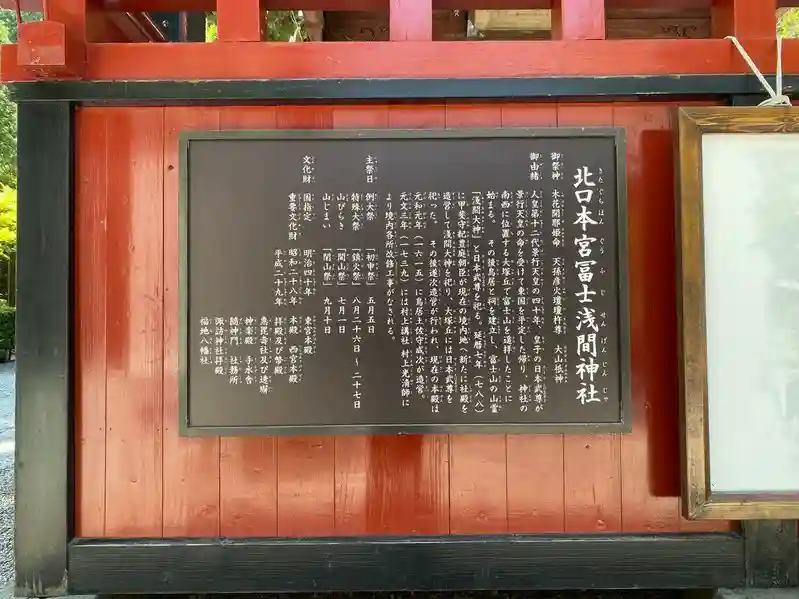 北口本宮冨士浅間神社
きたぐちほんぐうふじせんげんじんじゃ
御祭神　木花開耶姫命　天孫彦火瓊瓊杵尊　大山祇神
御由緒　人皇第十二代景行天皇の四十年、皇子の日本武尊が
景行天皇の命を受けて東国を平定した帰り、神社の
南西に位置する大塚丘で富士山を遥拝したことに
始まる。その後鳥居と祠を建立し、富士山の山霊
「浅間大神」と日本武尊を祀る。延暦七年（七八八）
に甲斐守紀豊庭朝臣が現在の境内地へ新たに社殿を
造営して浅間大神を祀り、大塚丘には日本武尊を
祀った。その後逐次造営が行われ、現在の本殿は
元和元年（一六一五）に鳥居土佐守成次が造営。
元文三年（一七三九）には村上講社 村上光清師に
より境内各所改修工事がなされる。
主祭日　例大祭　「初申祭」　五月五日
特殊大祭　「鎮火祭」　八月二十六日～二十七日
山びらき　「開山祭」　七月一日
山じまい　「閉山祭」　九月十日
文化財　国指定　明治四十年　東宮本殿
重要文化財　昭和二十八年　本殿　西宮本殿
平成二十九年　拝殿及び幣殿
恵毘壽社及び透塀
神楽殿　手水舎
随神門　社務所
諏訪神社拝殿
福地八幡社